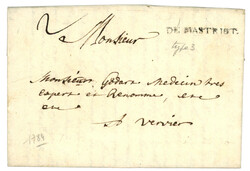 Monsieur
DE MASTRICT.
type 3
Monsieur Godart Medecin tres
expert et Renommé, etc
etc
A Vervier
1789